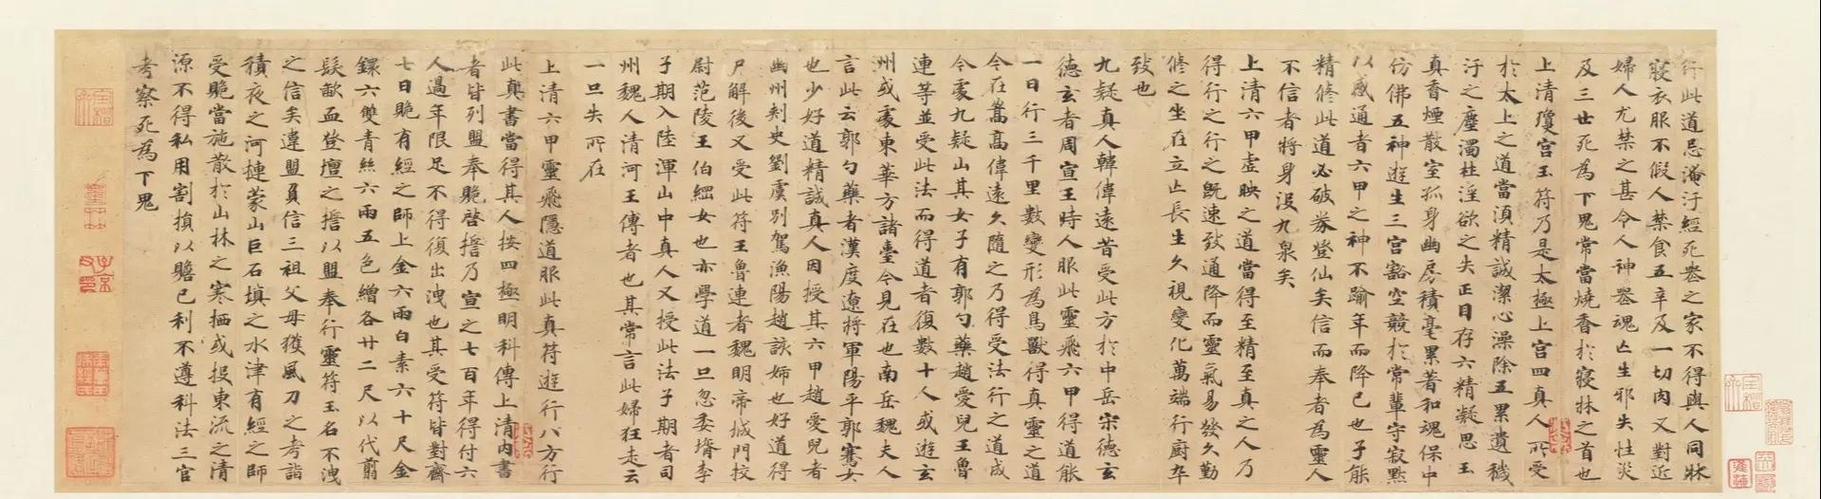 行此道忌淹汙經死喪之家不得與人同牀
寢衣服不假人禁食五辛及一切肉又對近
婦人尤禁之甚令人神喪魂亡生邪失性災
及三世死為下鬼常當燒香於寢牀之首也
上清瓊宮玉符乃是太極上宮四真人所受
於太上之道當須精誠潔心澡除五累遺穢
汙之塵濁杜淫欲之失正目存六精凝思玉
真香煙散室孤身幽房積毫累著和魂保中
仿佛五神遊生三宮豁空競於常輩守寂默
以感通者六甲之神不踰年而降已也子能
精修此道必破券登仙矣信而奉者為靈人
不信者將身沒九泉矣
上清六甲虛映之道當得至精至真之人乃
得行之行之既速致通降而靈氣易發久勤
修之坐在立亡長生久視變化萬端行廚卒
致也
九疑真人韓偉遠昔受此方於中岳宋德玄
德玄者周宣王時人服此靈飛六甲得道能
一日行三千里數變形為鳥獸得真靈之道
今在嵩高偉遠久隨之乃得受法行之道成
今處九疑山其女子有郭勺藥趙愛兒王魯
連等並受此法而得道者復數十人或遊玄
州或處東華方諸臺今見在也南岳魏夫人
言此云郭勺藥者漢度遼將軍陽平郭騫女
也少好道精誠真人因授其六甲趙愛兒者
幽州刺史劉虞別駕漁陽趙該姊也好道得
尸解後又受此符王魯連者魏明帝城門校
尉范陵王伯綱女也亦學道一旦忽委壻李
子期入陸渾山中真人又授此法子期者司
州魏人清河王傳者也其常言此婦狂走云
一旦失所在
上清六甲靈飛隱道服此真符遊行八方行
此真書當得其人按四極明科傳上清內書
者皆列盟奉貺啓擔乃宣之七百年得付六
人過年限足不得復出洩也其受符皆對齋
七日貺有經之師上金六兩白素六十尺金
鐶六雙青絲六兩五色繒各廿二尺以代翦
髮歃血登壇之擔以盟奉行靈符玉名不洩
之信矣違盟負信三祖父母獲風刀之考詣
積夜之河摙蒙山巨石填之水津有經之師
受貺當施散於山林之寒栖或投東流之清
源不得私用割損以贍己利不遵科法三官
考察死為下鬼